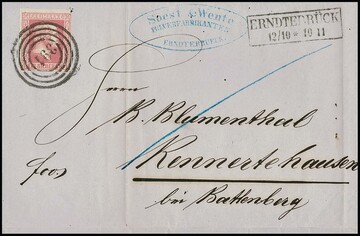 Soest & Wente
ERNDTEBRÜCK
ERNDTEBRÜCK
12/10 * 10 11
Herrn
B. Blumenthal
frco
Rennertehausen
bei Battenberg